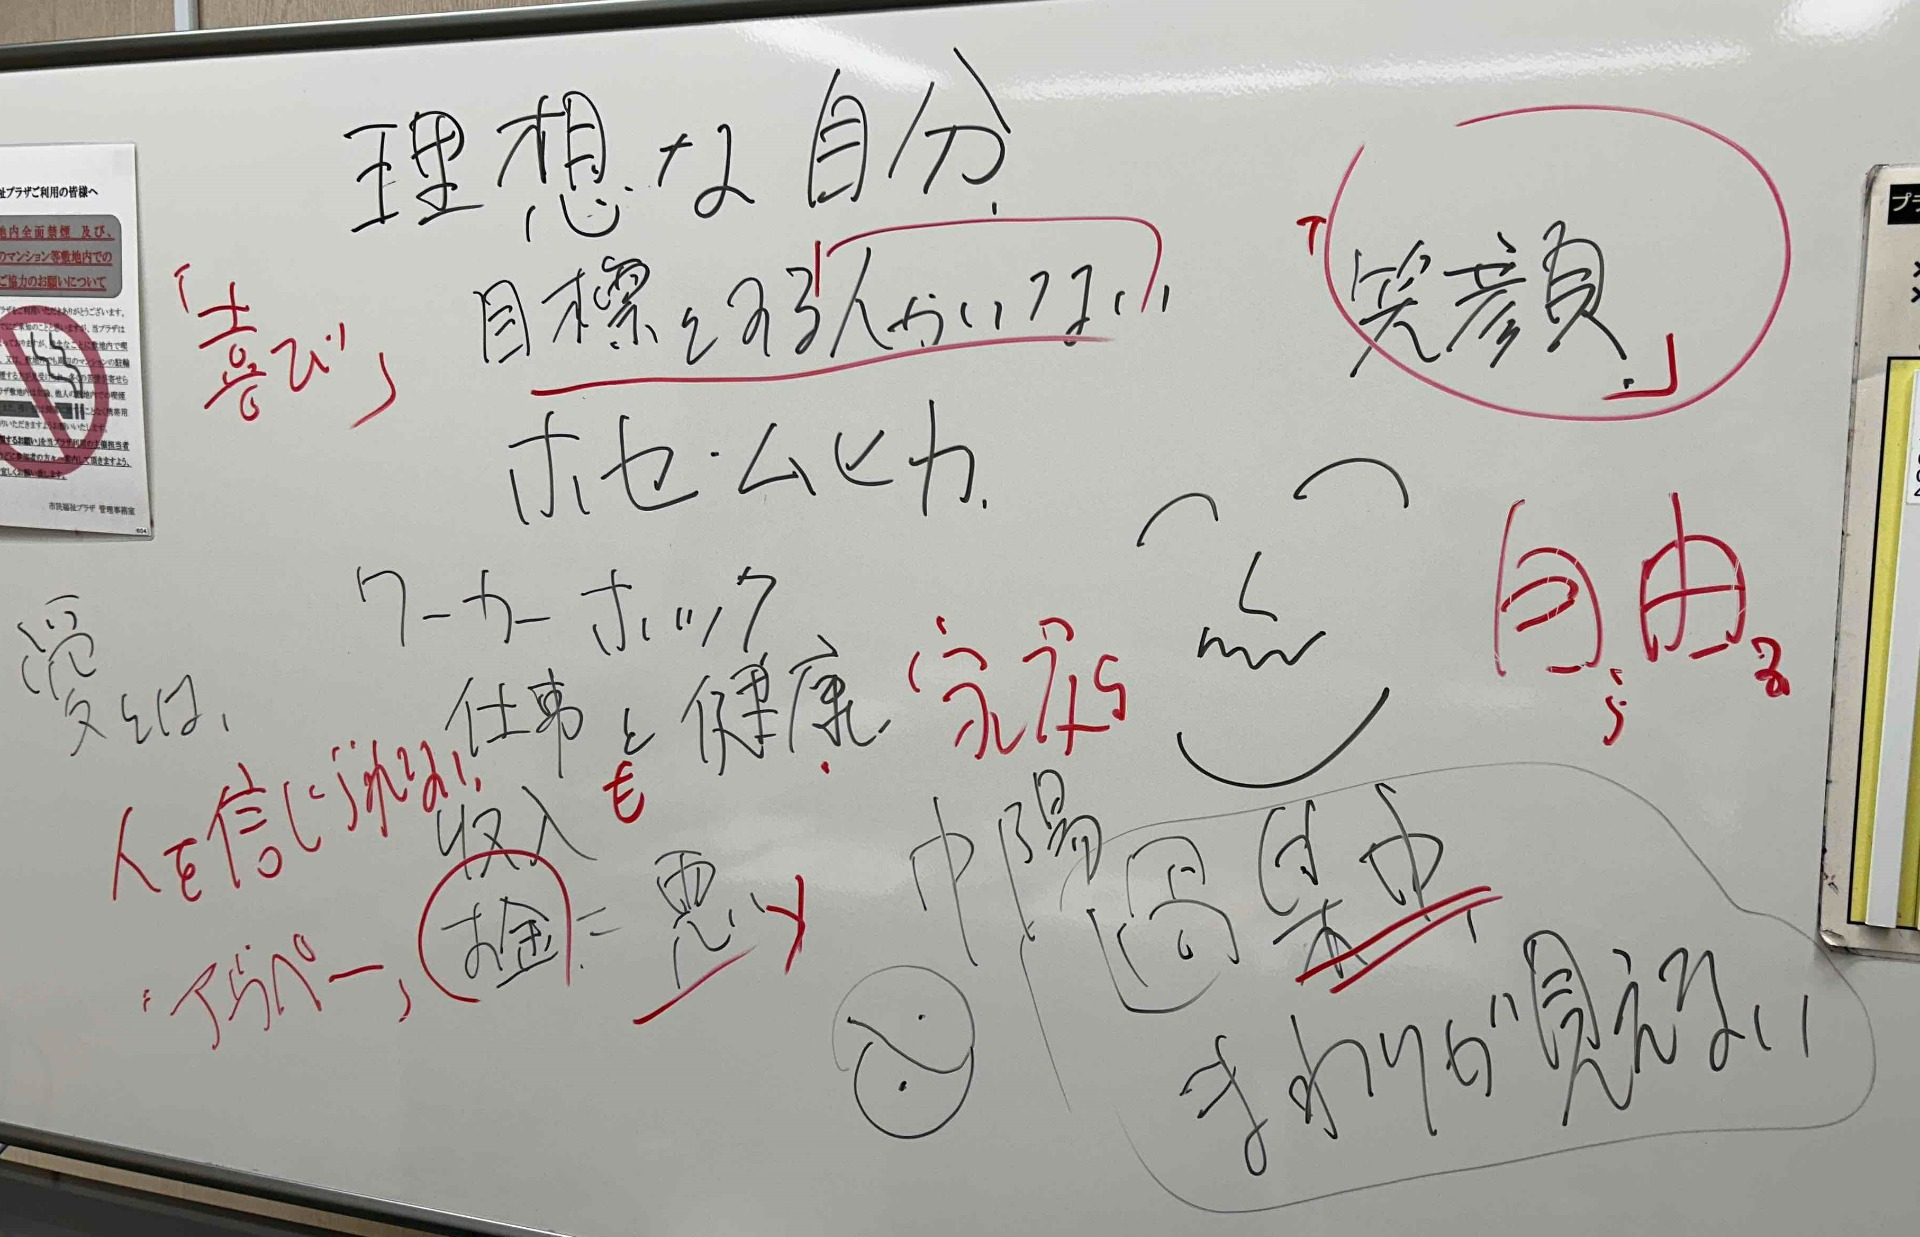 理想な自分
目標とする人がいない
「喜び」
「笑顔」
ホセ・ムヒカ
自由
ワーカーホック
愛とは、
仕事と健康 家族
も
人を信じられない
収入
お金=悪
中陽
過集中
まわりが見えない
社プラザご利用の皆様へ
地内全面禁煙 及び、
のマンション等敷地内での
ご協力のお願いについて
市民福祉プラザ 管理事務室